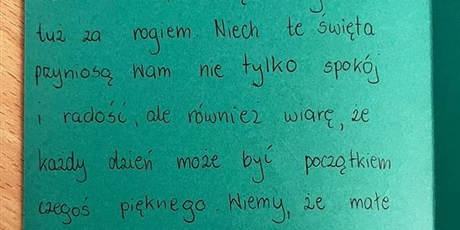 tuż za rogiem. Niech te święta
przyniosą Wam nie tylko spokój
i radość, ale również wiarę, że
każdy dzień może być początkiem
czegoś pięknego. Wiemy, że małe